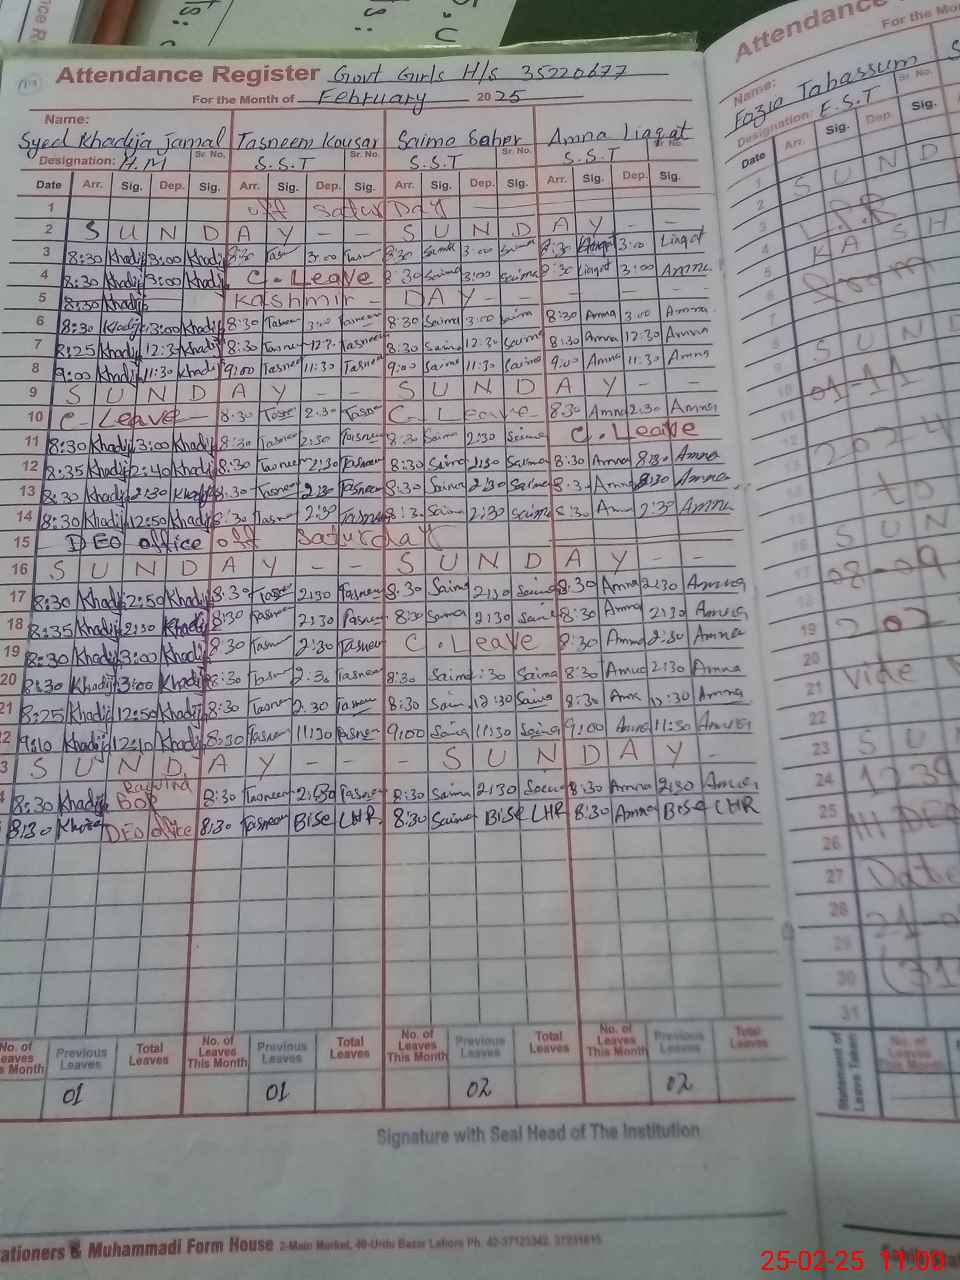 Attendance Register Govt Girls H/S 35220677
For the Month of February 2025
Name:
Syed Khadija Jamal Tasneem Kousar Saima Saher Amna Liaqat
Designation: H.M Sr. No. S.S.T Sr. No. S.S.T Sr. No. S.S.T
Date Arr. Sig. Dep. Sig. Arr. Sig. Dep. Sig. Arr. Sig. Dep. Sig. Arr. Sig. Dep. Sig.
1 off Saturday
2 S U N D A Y - - S U N D A Y - -
3 8:30 Khadij 3:00 Khadij 8:30 Tasn 3:00 Tasn 8:30 Saima 3:00 Saima 8:30 Liaqat 3:00 Liaqat
4 8:30 Khadij 3:00 Khadij C. Leave 8:30 Saima 3:00 Saima 8:30 Liaqat 3:00 Amna
5 8:30 Khadij Kashmir - DAY - - - - -
6 8:30 Khadij 3:00 Khadij 8:30 Tasnee 3:00 Tasneem 8:30 Saima 3:00 Saima 8:30 Amna 3:00 Amna
7 8:25 Khadij 12:3 Khadij 8:30 Tasnee 12:3 Tasneem 8:30 Saima 12:30 Saima 8:30 Amna 12:30 Amna
8 9:00 Khadij 11:30 Khadij 9:00 Tasnee 11:30 Tasnee 9:00 Saima 11:30 Saima 9:00 Amna 11:30 Amna
9 S U N D A Y - - S U N D A Y - -
10 C. Leave 8:30 Tasne 2:30 Tasne C. Leave 8:30 Amna 2:30 Amna
11 8:30 Khadij 3:00 Khadij 8:30 Tasnee 2:30 Tasneem 8:30 Saima 2:30 Saima C. Leave
12 8:35 Khadij 2:40 Khadij 8:30 Tasneem 2:30 Tasneem 8:30 Saima 2:30 Saima 8:30 Amna 8:30 Amna
13 8:30 Khadij 2:30 Khadij 8:30 Tasnee 2:30 Tasneem 8:30 Saima 2:30 Saima 8:3 Amna 8:30 Amna
14 8:30 Khadij 12:50 Khadij 8:30 Tasn 2:30 Tasnee 8:3 Saima 2:30 Saima 8:30 Am 2:30 Amna
15 DEO office off Saturday
16 S U N D A Y - - S U N D A Y - -
17 8:30 Khadij 2:50 Khadij 8:30 Tasne 2:30 Tasneem 8:30 Saima 2:30 Saima 8:30 Amna 2:30 Amna
18 8:35 Khadij 2:30 Khadij 8:30 Tasnee 2:30 Tasnee 8:30 Saima 2:30 Saima 8:30 Amna 2:30 Amna
19 8:30 Khadij 3:00 Khadij 8:30 Tasn 2:30 Tasnee C. Leave 8:30 Amna 2:30 Amna
20 8:30 Khadij 3:00 Khadij 8:30 Tasn 2:30 Tasneem 8:30 Saima :30 Saima 8:30 Amna 2:30 Amna
21 8:25 Khadij 12:50 Khadij 8:30 Tasne 2:30 8:30 Saim 12:30 Saima 8:30 Amna 12:30 Amna
2 9:10 Khadij 12:10 Khadij 8:30 Tasne 11:30 Tasnee 9:00 Saima 11:30 Saima 9:00 Amna 11:30 Amna
3 S U N D A Y - - - S U N D A Y -
4 8:30 Khadij Raiwind BOP 8:30 Tasneem 2:30 Tasnee 8:30 Saima 2:30 Saima 8:30 Amna 2:30 Amna
8:30 Khadij DEO office 8:30 Tasneem BISE LHR 8:30 Saima BISE LHR 8:30 Amna BISE LHR
No. of Leaves This Month Previous Leaves Total Leaves No. of Leaves This Month Previous Leaves Total Leaves No. of Leaves This Month Previous Leaves Total Leaves No. of Leaves This Month Previous Leaves Total Leaves
01 01 02 02
Signature with Seal Head of The Institution
ationers & Muhammadi Form House 2-Main Market, 40-Urdu Bazar Lahore Ph: 42-37123342, 37231615
Attendance
For the Mo
Name:
Fozia Tabassum
Sr. No.
Designation: E.S.T
Date Arr. Sig. Dep. Sig.
1 S U N D
2
3 L.R
4 KASH
5 from
6
7
8 S U N D
9
10 01-11
11
12 2024
13
14 to
15 S U N
16
17 08-09
18
19 202
20
21 vide
22
23 S U N
24 1239
25
26 DEO
27 Date
28 21-0
29
30 (31
31
Statement of Leave Taken
No. of Leaves This Month
25-02-25 11:00